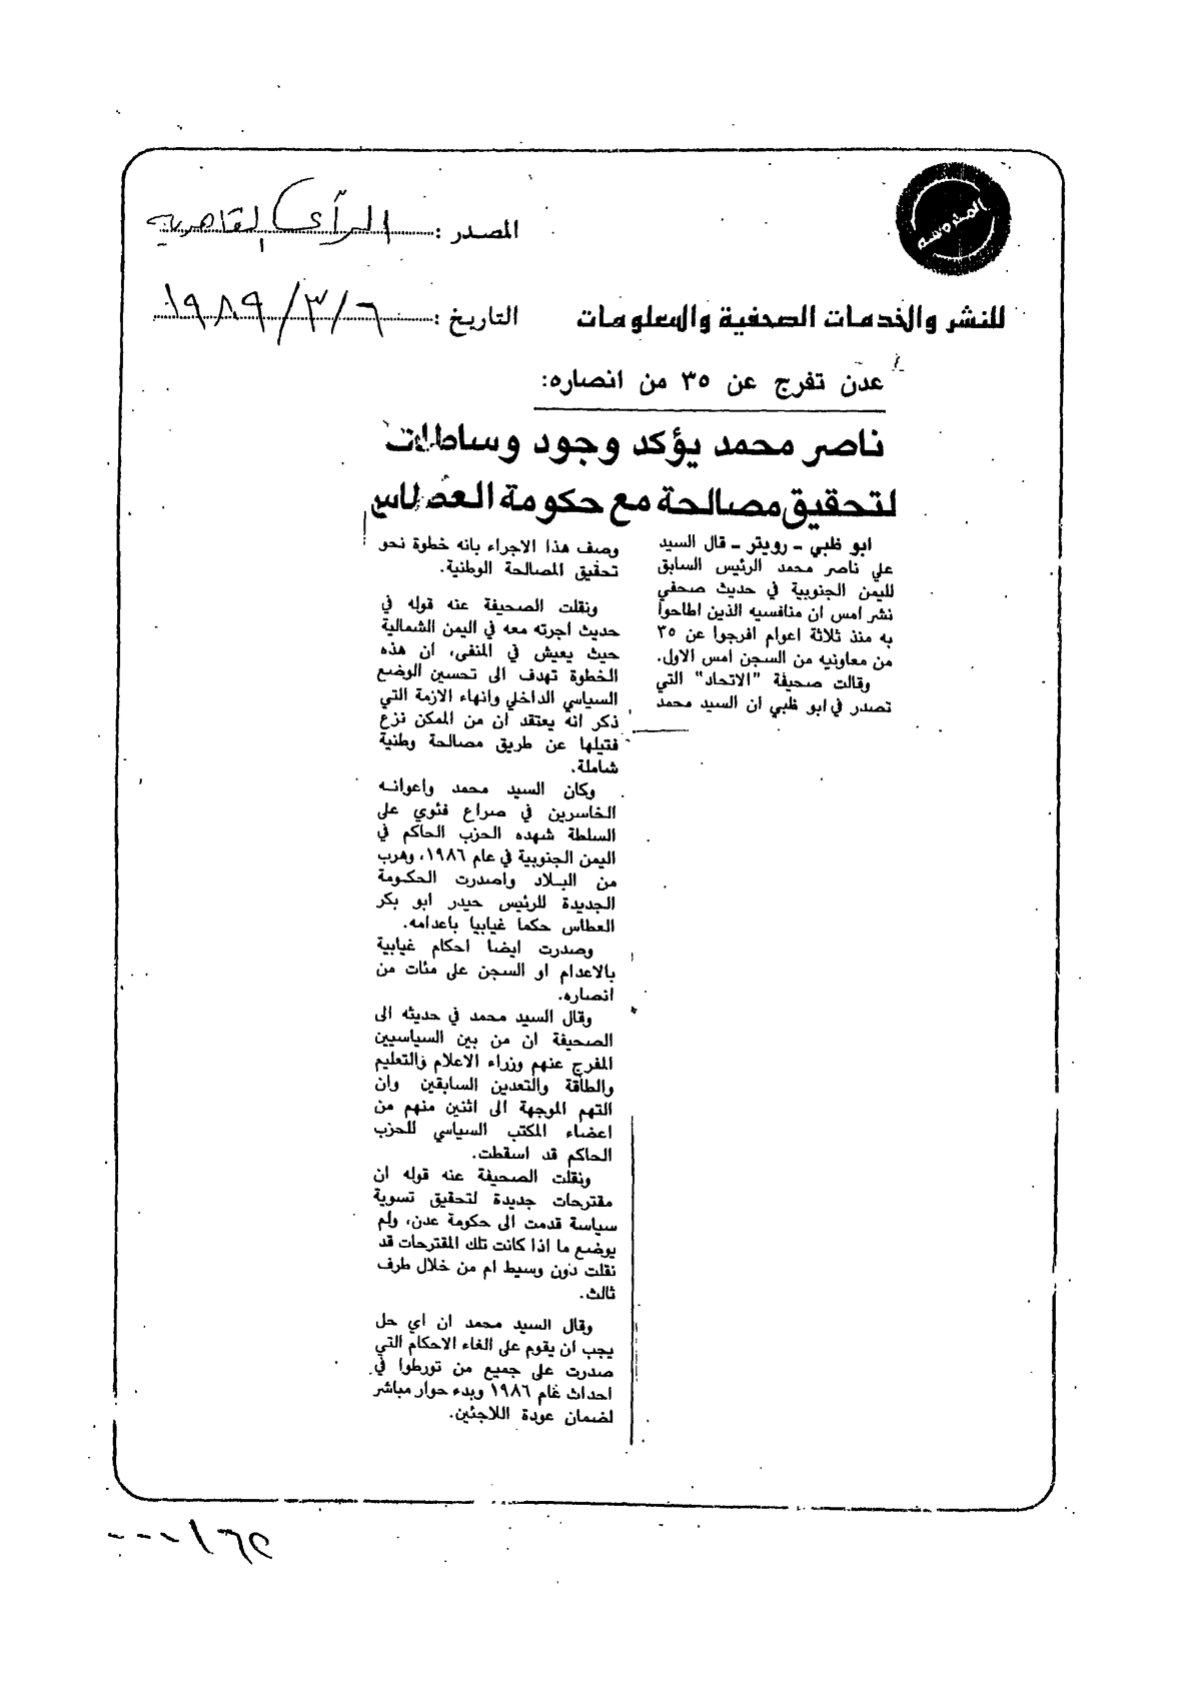 المدرسه
المصدر : الرأى القاهريه
للنشر والخدمات الصحفية والمعلومات
التاريخ : ٦ / ٣ / ١٩٨٩
عدن تفرج عن ٣٥ من انصاره:
ناصر محمد يؤكد وجود وساطات
لتحقيق مصالحة مع حكومة العطاس
ابو ظبي - رويتر - قال السيد
علي ناصر محمد الرئيس السابق
لليمن الجنوبية في حديث صحفي
نشر امس ان منافسيه الذين اطاحوا
به منذ ثلاثة اعوام افرجوا عن ٣٥
من معاونيه من السجن امس الاول.
وقالت صحيفة "الاتحاد" التي
تصدر في ابو ظبي ان السيد محمد
وصف هذا الاجراء بانه خطوة نحو
تحقيق المصالحة الوطنية.
ونقلت الصحيفة عنه قوله في
حديث اجرته معه في اليمن الشمالية
حيث يعيش في المنفى، ان هذه
الخطوة تهدف الى تحسين الوضع
السياسي الداخلي وانهاء الازمة التي
ذكر انه يعتقد ان من الممكن نزع
فتيلها عن طريق مصالحة وطنية
شاملة.
وكان السيد محمد واعوانه
الخاسرين في صراع فئوي على
السلطة شهده الحزب الحاكم في
اليمن الجنوبية في عام ١٩٨٦، وهرب
من البلاد واصدرت الحكومة
الجديدة للرئيس حيدر ابو بكر
العطاس حكما غيابيا باعدامه.
وصدرت ايضا احكام غيابية
بالاعدام او السجن على مئات من
انصاره.
وقال السيد محمد في حديثه الى
الصحيفة ان من بين السياسيين
المفرج عنهم وزراء الاعلام والتعليم
والطاقة والتعدين السابقين وان
التهم الموجهة الى اثنين منهم من
اعضاء المكتب السياسي للحزب
الحاكم قد اسقطت.
ونقلت الصحيفة عنه قوله ان
مقترحات جديدة لتحقيق تسوية
سياسة قدمت الى حكومة عدن، ولم
يوضع ما اذا كانت تلك المقترحات قد
نقلت دون وسيط ام من خلال طرف
ثالث.
وقال السيد محمد ان اي حل
يجب ان يقوم على الغاء الاحكام التي
صدرت على جميع من تورطوا في
احداث عام ١٩٨٦ وبدء حوار مباشر
لضمان عودة اللاجئين.